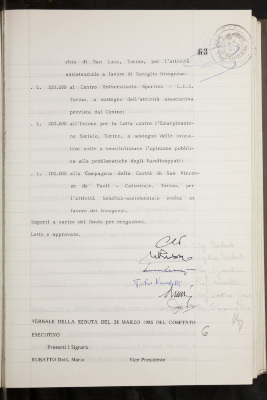 63
chia di San Luca, Torino, per l'attività
assistenziale a favore di famiglie bisognose.
. L. 250.000 al Centro Universitario Sportivo - C.U.S.
Torino, a sostegno dell'attività associativa
prevista dal Centro;
. L. 200.000 all'Unione per la Lotta contro l'Emarginazio-
ne Sociale, Torino, a sostegno delle inizia-
tive volte a sensibilizzare l'opinione pubbli-
ca alle problematiche degli handicappati;
. L. 100.000 alla Compagnia della Carità di San Vincen-
zo de' Paoli - Cattedrale, Torino, per
l'attività benefico-assistenziale svolta in
favore dei bisognosi.
Importi a carico del fondo per erogazioni.
Letto e approvato.
VERBALE DELLA SEDUTA DEL 26 MARZO 1986 DEL COMITATO
ESECUTIVO
6
Presenti i Signori:
RUBATTO Dott. Mario Vice Presidente